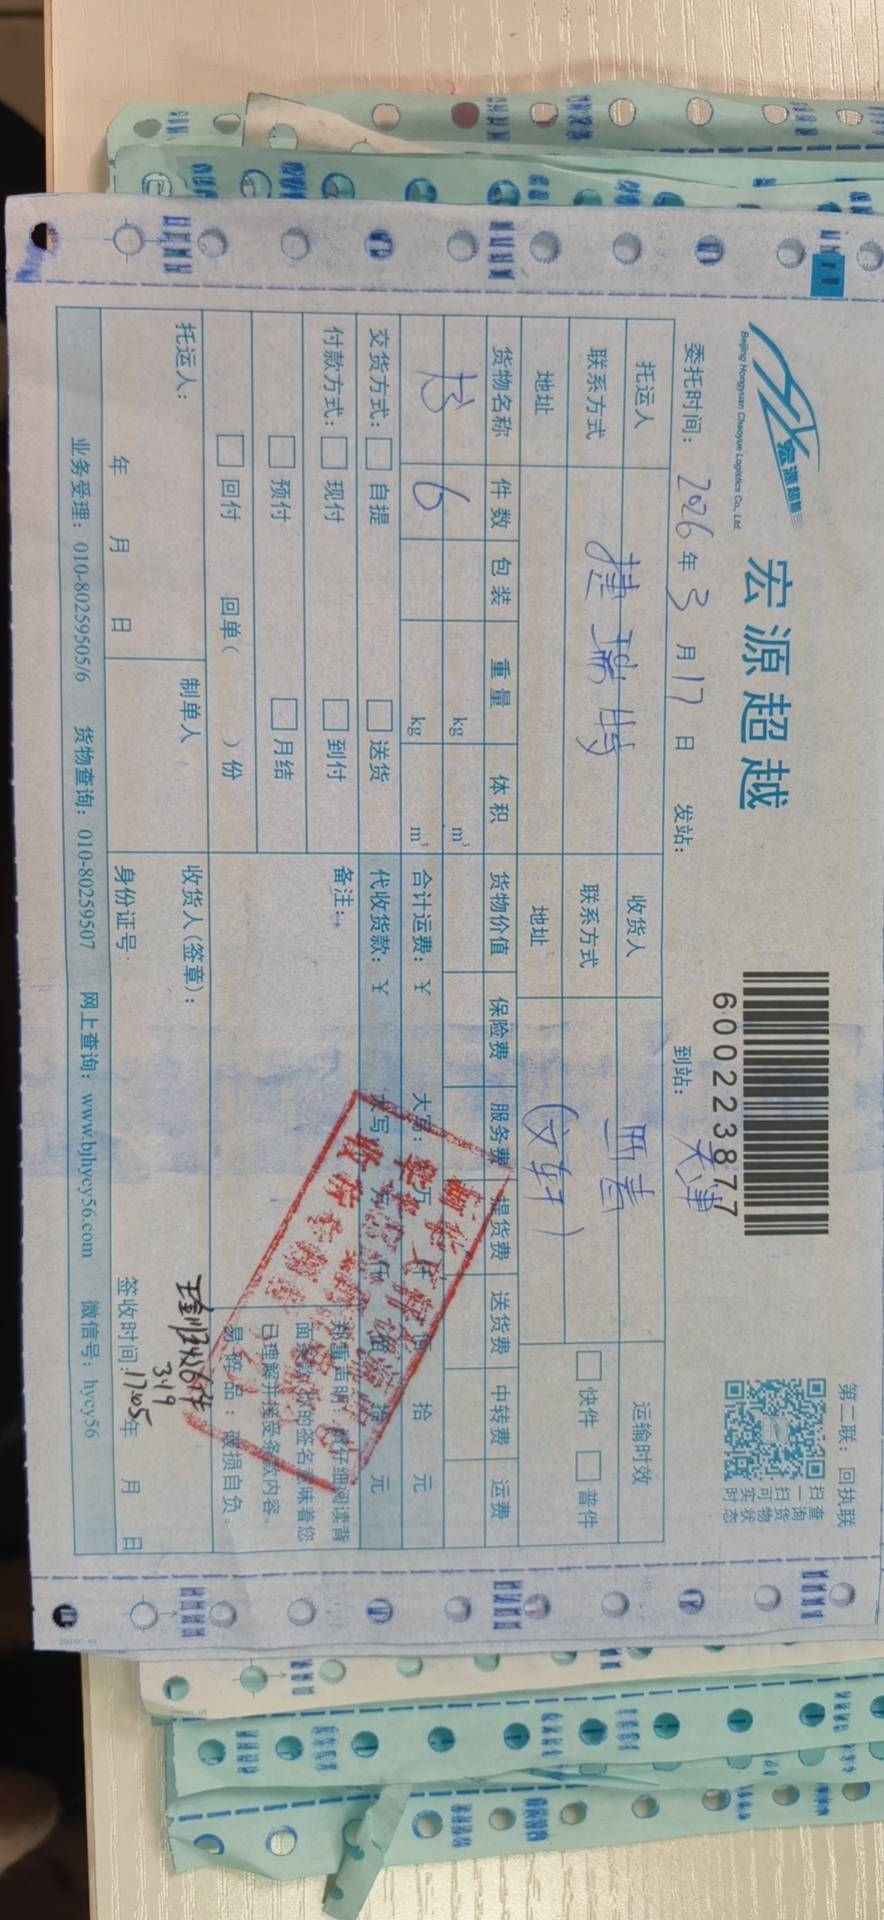 宏源超越
Beijing Hongyuan Chaoyue Logistics Co., Ltd.
宏源超越
6000223877
第二联：回执联
扫一扫可实时
查询货物状态
委托时间：2026年3月17日 发站： 到站：天津
托运人 收货人 运输时效
联系方式 捷瑞特 联系方式 快件 普件
地址 地址 (文轩)
货物名称 件数 包装 重量 体积 货物价值 保险费 服务费 提货费 送货费 中转费 运费
kg m³
书 6 kg m³ 合计运费：￥ 大写： 万 仟 佰 拾 元
交货方式： 自提 送货 代收货款：￥ 大写 万 仟 拾 元
付款方式： 现付 到付 备注：
预付 月结
回付 回单（ ）份
郑重声明：请仔细阅读背
面条款，您的签名意味着您
已理解并接受条款内容。
易碎品：破损自负。
托运人： 制单人 收货人(签章)：
3.19
17:05
年 月 日 身份证号： 签收时间： 年 月 日
业务受理：010-80259505/6 货物查询：010-80259507 网上查询：www.bjhycy56.com 微信号：hycy56